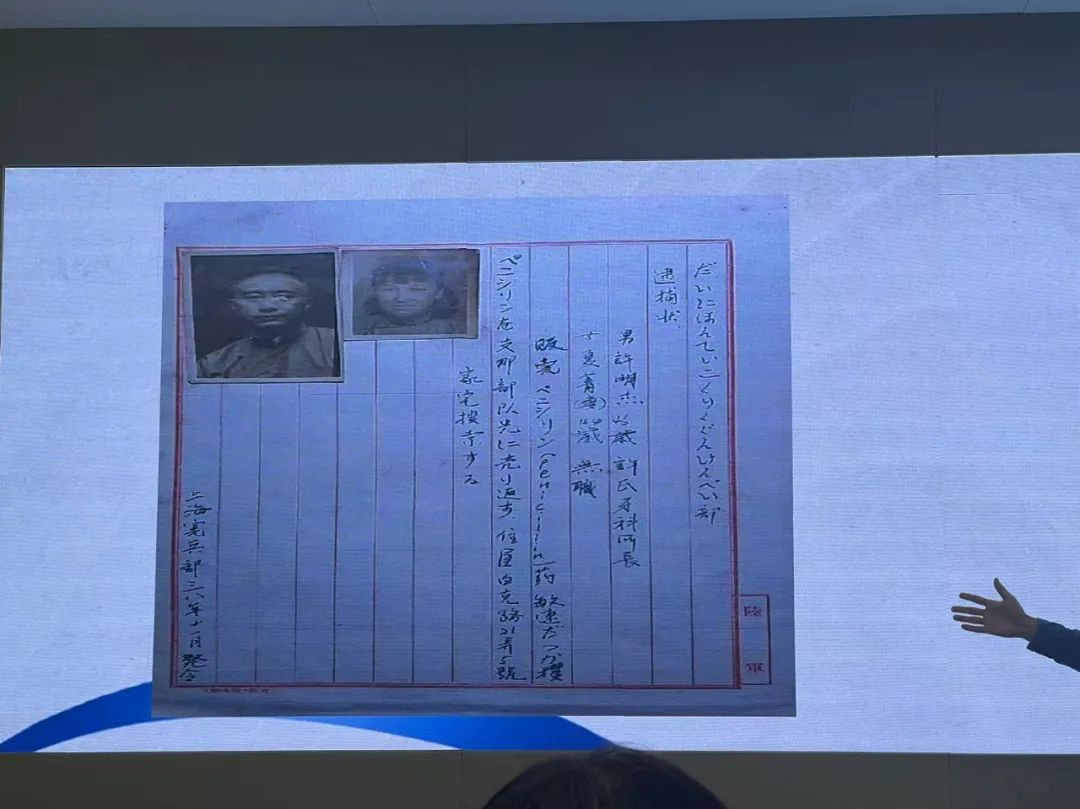 だいにほんていこくりくぐんけんぺい部
逮捕状
男 許明杰 歳 許氏牙科所長
夏菁(妻) 歳 無職
販売 ペニシリン(penicillin)药 敏速だつが機
ペニシリンを支那部队先に売り返す、住屋白克路21弄5號
家宅搜索する
上海憲兵部三八年十一月発令
陸軍